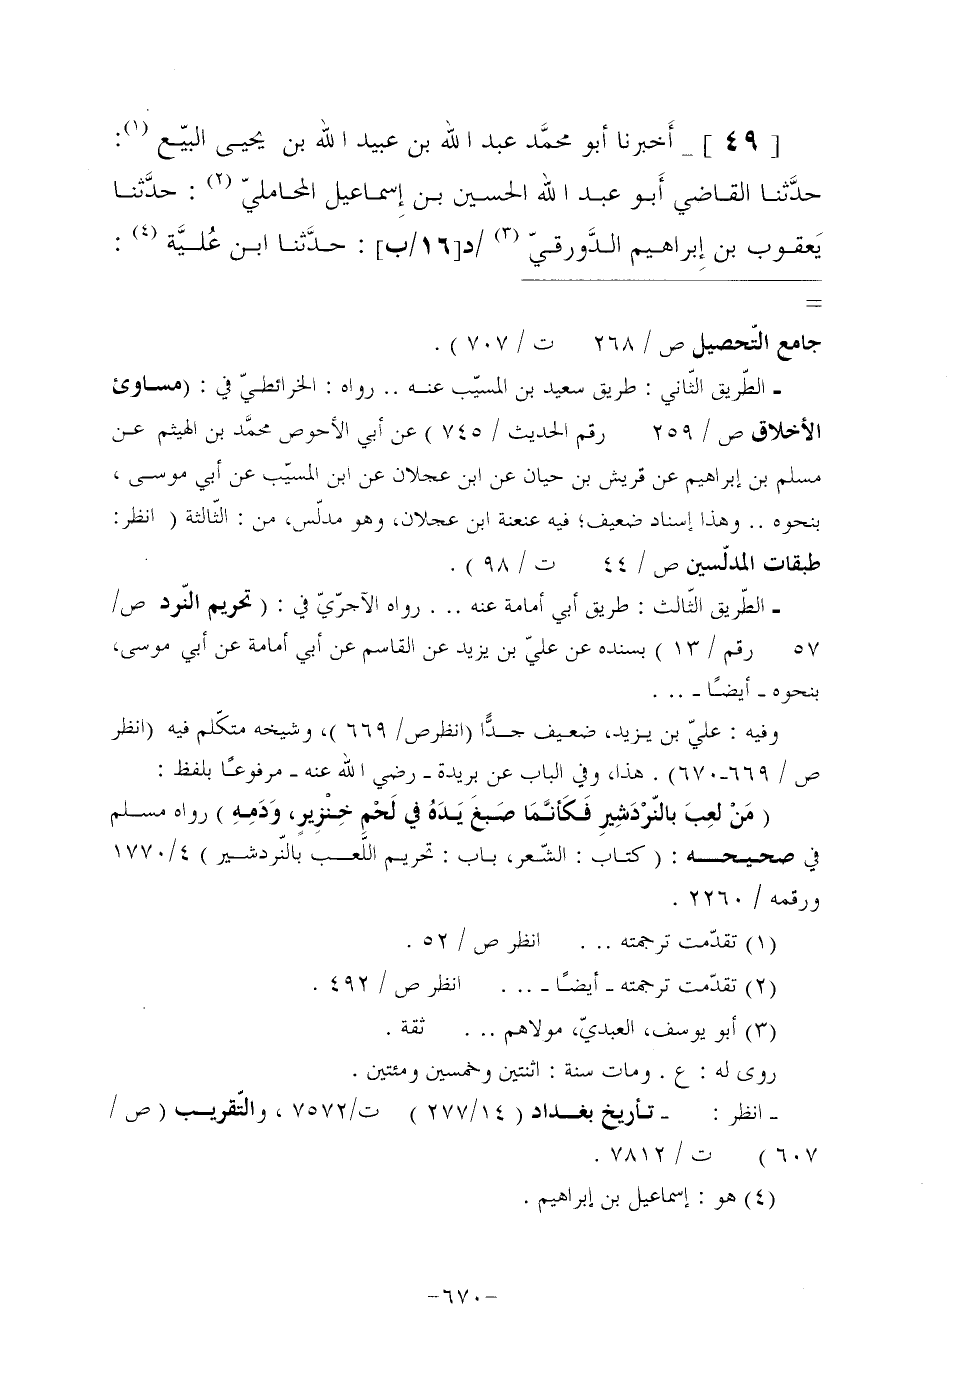 [ ٤٩ ] ـ أَخبرنا أبو محمَّد عبد الله بن عبيد الله بن يحيى البيّع (١):
حدَّثنا القاضي أَبو عبد الله الحسين بن إِسماعيل المحامليّ (٢) : حدَّثنا
يَعقوب بن إِبراهيم الدَّورقيّ (٣) /د[١٦/ب] : حدَّثنا ابن عُليَّة (٤) :
=
جامع التّحصيل ص / ٢٦٨ ت / ٧٠٧ ) .
ـ الطّريق الثّاني : طريق سعيد بن المسيّب عنه .. رواه : الخرائطيّ في : (مساوئ
الأخلاق ص / ٢٥٩ رقم الحديث / ٧٤٥ ) عن أبي الأحوص محمَّد بن الهيثم عن
مسلم بن إبراهيم عن قريش بن حيان عن ابن عجلان عن ابن المسيّب عن أبي موسى ،
بنحوه .. وهذا إسناد ضعيف؛ فيه عنعنة ابن عجلان، وهو مدلّس، من : الثّالثة ( انظر:
طبقات المدلّسين ص / ٤٤ ت / ٩٨ ) .
ـ الطّريق الثّالث : طريق أبي أمامة عنه .. . رواه الآجرّيّ في : ( تحريم النّرد ص/
٥٧ رقم / ١٣ ) بسنده عن عليّ بن يزيد عن القاسم عن أبي أمامة عن أبي موسى،
بنحوه ـ أيضًا ـ .. .
وفيه : عليّ بن يزيد، ضعيف جدًّا (انظرص/ ٦٦٩ )، وشيخه متكلّم فيه (انظر
ص / ٦٦٩-٦٧٠) . هذا، وفي الباب عن بريدة ـ رضي الله عنه ـ مرفوعًا بلفظ :
( مَنْ لعِبَ بالنّرْدَشيرِ فَكَأنَّمَا صَبغَ يَدَهُ في لَحْمِ خِنْزيرٍ، وَدَمِهِ ) رواه مسلم
في صحيحه : ( كتاب : الشّعر، باب : تحريم اللَّعب بالنّردشير ) ١٧٧٠/٤
ورقمه / ٢٢٦٠ .
(١) تقدّمت ترجمته .. . انظر ص / ٥٢ .
(٢) تقدّمت ترجمته ـ أيضًا ـ .. . انظر ص / ٤٩٢ .
(٣) أبو يوسف، العبديّ، مولاهم .. . ثقة .
روى له : ع . ومات سنة : اثنتين وخمسين ومئتين .
ـ انظر : ـ تأريخ بغداد ( ٢٧٧/١٤ ) ت/٧٥٧٢ ، والتّقريب ( ص /
٦٠٧ ) ت / ٧٨١٢ .
(٤) هو : إسماعيل بن إبراهيم .
-٦٧٠-